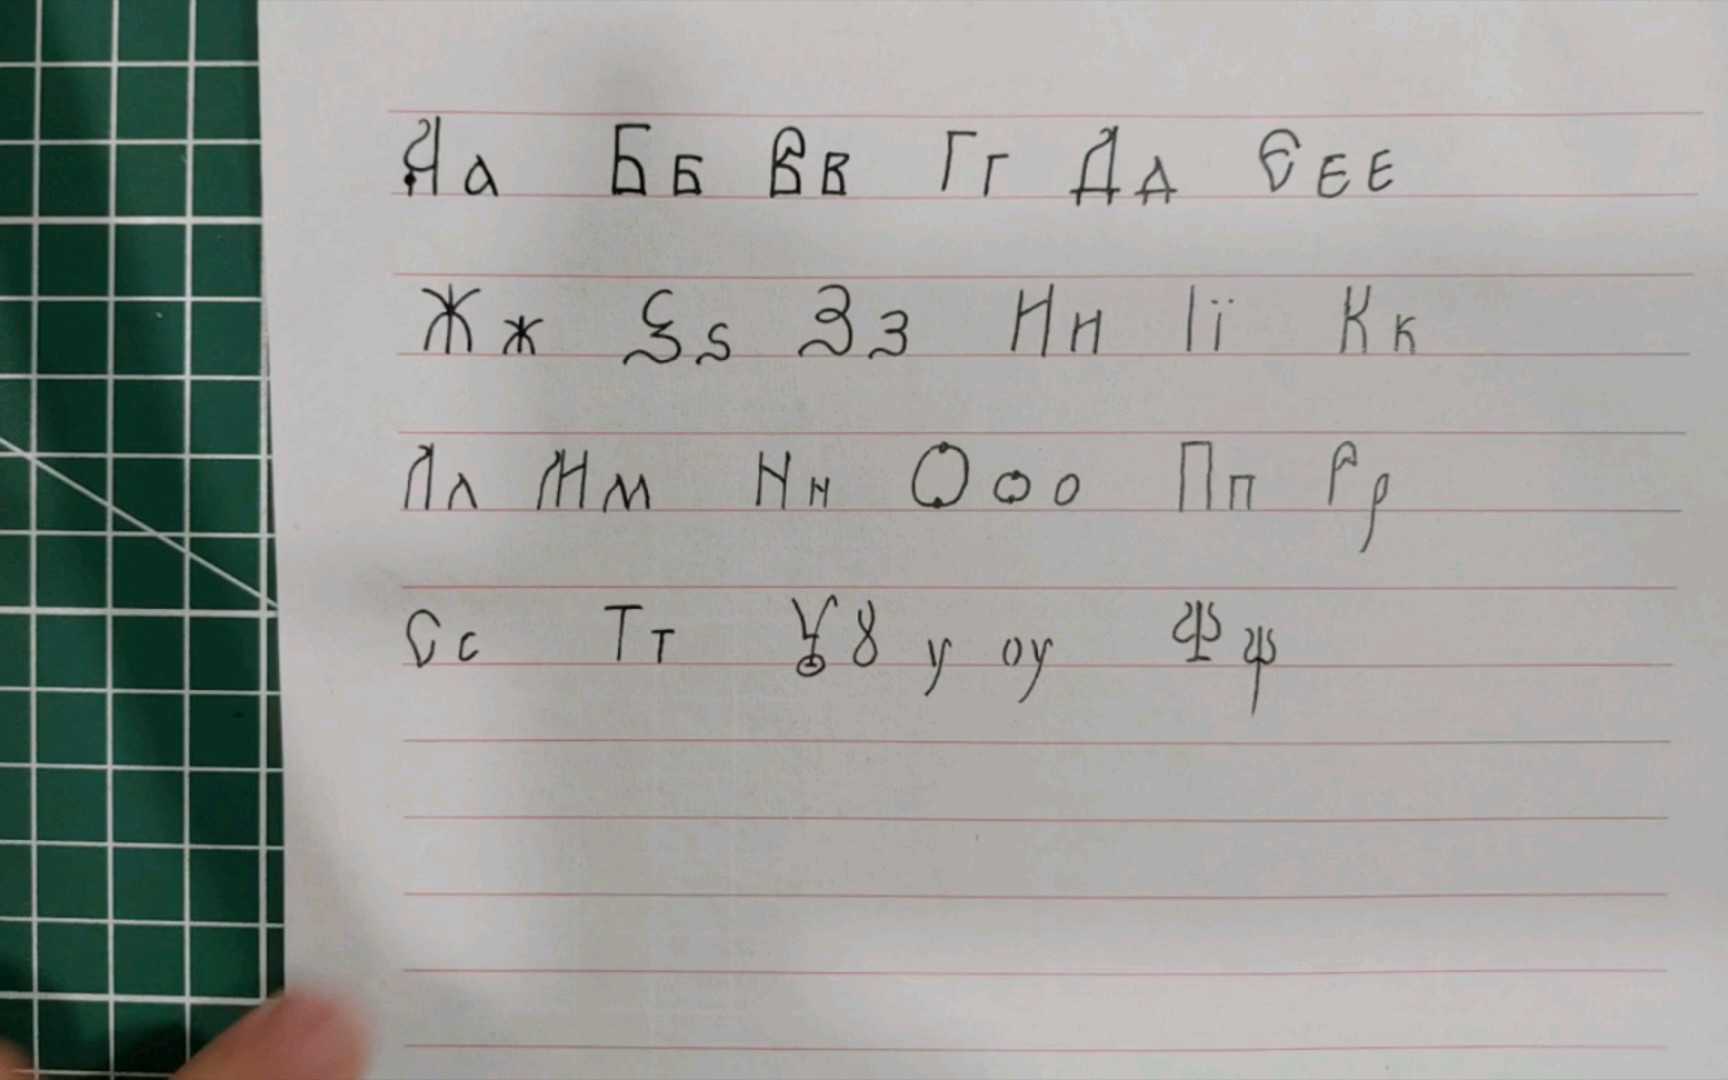 Аа Бб Вв Гг Дд Єєє
Жж Ѕѕ Зз Ии Ії Кк
Лл Мм Нн Ооо Пп Рр
Сс Тт Ꙋꙋ у оу Фф